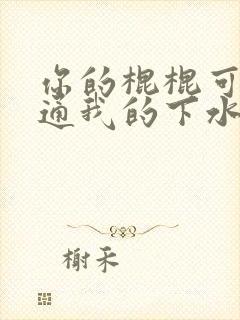 你的棍棍可
通我的下水
榭禾